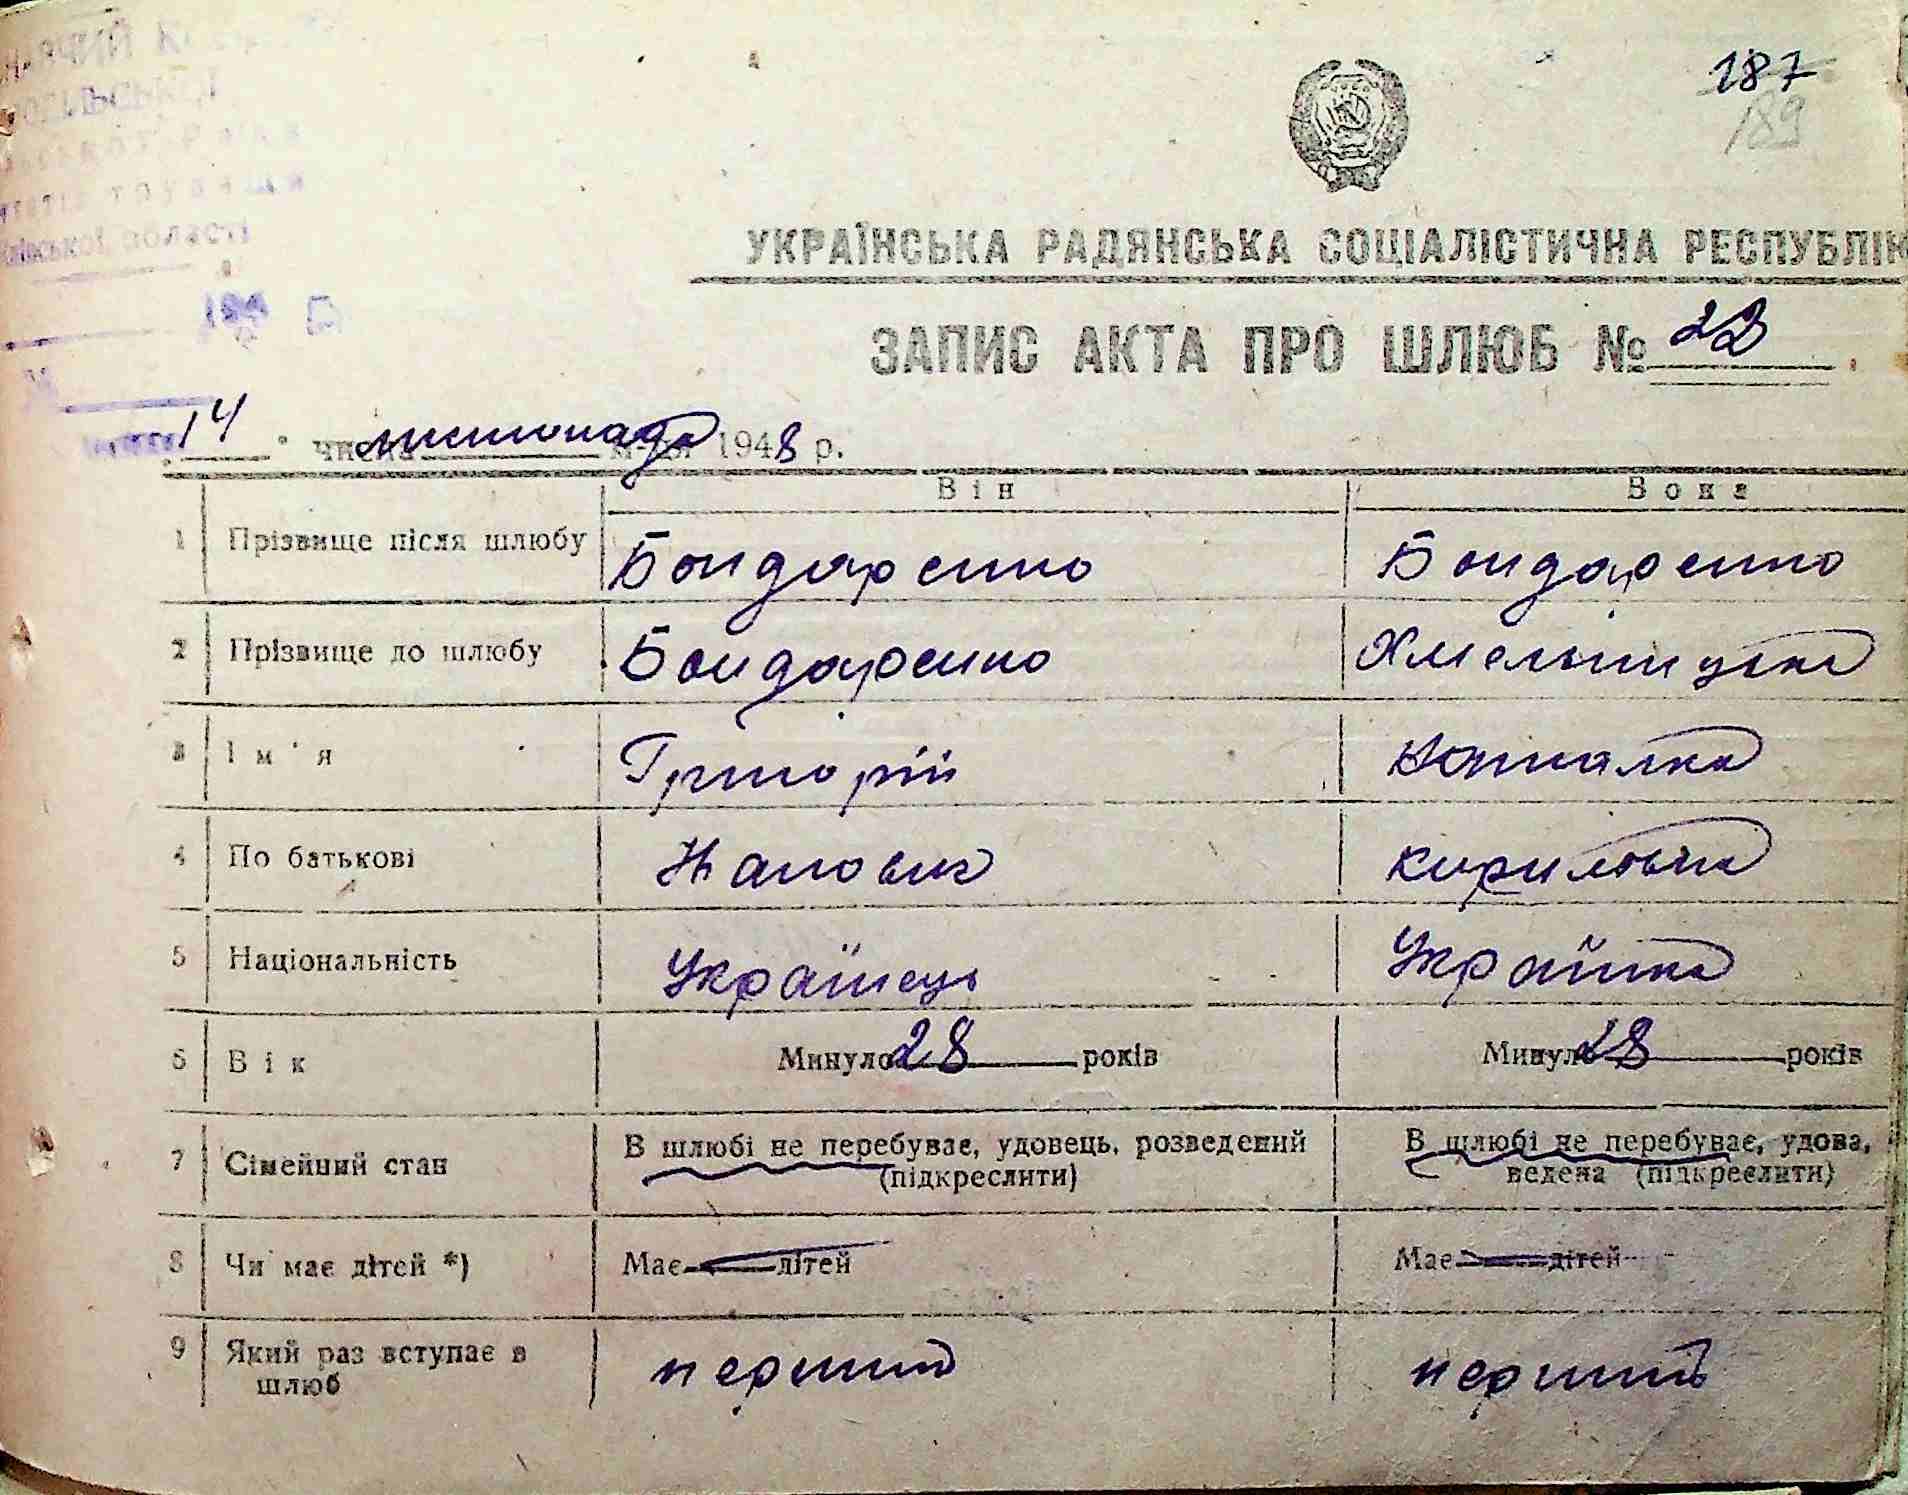 187
189
УКРАЇНСЬКА РАДЯНСЬКА СОЦІАЛІСТИЧНА РЕСПУБЛІК
ЗАПИС АКТА ПРО ШЛЮБ № 22
14 числа листопада м-ця 1948 р.
Він Вона
1 Прізвище після шлюбу Бондаренко Бондаренко
2 Прізвище до шлюбу Бондаренко Хмельницька
3 Ім'я Григорій
4 По батькові Кирилівна
5 Національність Українець Українка
6 Вік Минуло 28 років Минуло 28 років
7 Сімейний стан В шлюбі не перебуває, удовець, розведений В шлюбі не перебуває, удова,
(підкреслити) ведена (підкреслити)
8 Чи має дітей *) Має — дітей Має — дітей
9 Який раз вступає в перший перший
шлюб